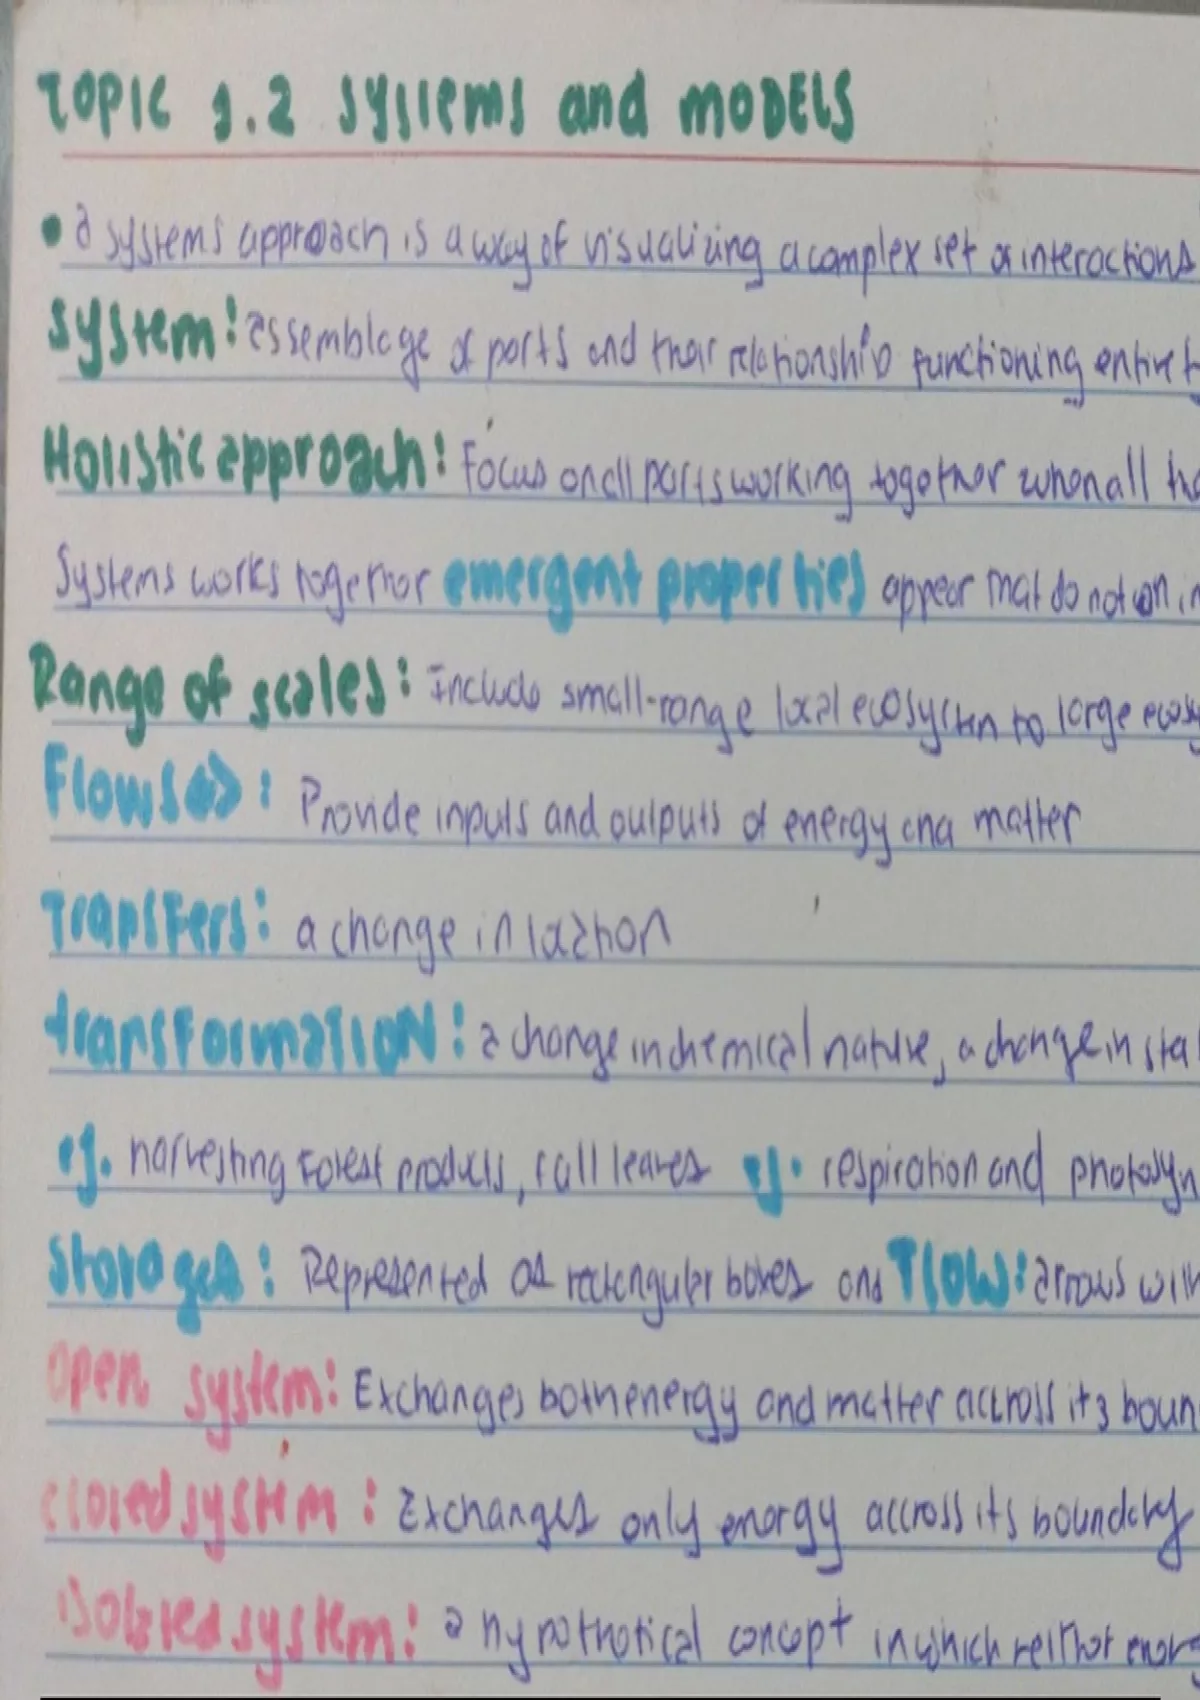 TOPIC 1.2 SYSTEMS and MODELS
• a systems approach is a way of visualizing a complex set of interactions
System: assemblage of parts and their relationship functioning entire
Holistic approach: Focus on all parts working together when all
Systems works together emergent properties appear that do not
Range of scales: Include small-range local ecosystem to large
Flows: Provide inputs and outputs of energy and matter
Transfers: a change in location
transFormaTION: a change in chemical nature, a change in
eg. harvesting forest products, fall leaves eg. respiration and
Storages: Represented as rectangular boxes and Flow: arrows
Open system: Exchanges both energy and matter accross its
closed system: Exchanges only energy accross its boundary
isolated system: a hypothetical concept in which neither